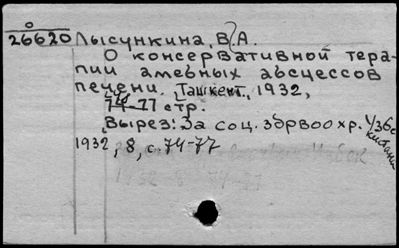 26620 Лысункина, В. А.
О консервативной тера-
пии амебных абсцессов
печени. Ташкент, 1932,
74-77 стр.
Вырез: За соц. здравоохр.
1932, 8, с. 74-77